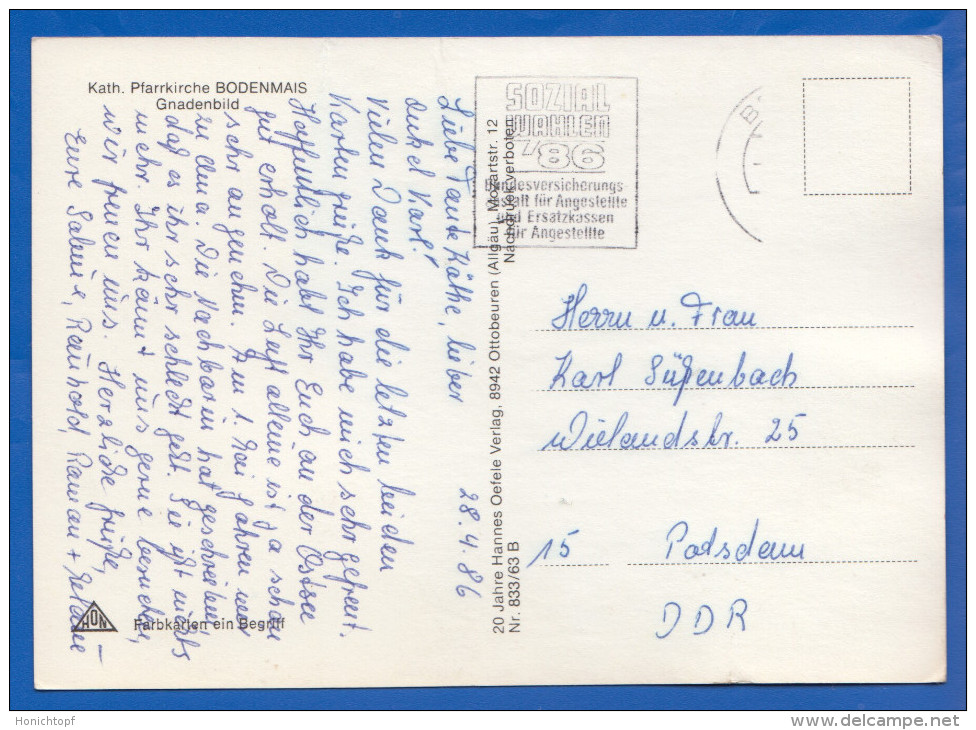 Kath. Pfarrkirche BODENMAIS
Gnadenbild
28.4.86
Liebe Tante Käthe, lieber
Onkel Karl!
Vielen Dank für die letzten beiden
Kartengrüße. Ich habe mich sehr gefreut.
Hoffentlich habt Ihr Euch an der Ostsee
gut erholt. Die Luft alleine ist ja schon
sehr angenehm. Am 1. Mai fahren wir
zu Oma. Die Nachbarin hat geschrieben,
daß es ihr sehr schlecht geht. Sie ißt nichts
mehr. Ihr könnt uns gerne besuchen,
wir freuen uns. Herzliche Grüße,
Eure Sabine, Reinhold, Raman +
HON
Farbkarten ein Begriff
20 Jahre Hannes Oefele Verlag, 8942 Ottobeuren (Allgäu), Mozartstr. 12
Nr. 833/63 B
Nachdruck verboten
SOZIAL
WAHLEN
'86
Bundesversicherungs-
anstalt für Angestellte
und Ersatzkassen
für Angestellte
Herrn u. Frau
Karl Süßenbach
Wielandstr. 25
15 Potsdam
DDR
Honichtopf
delcampe.net